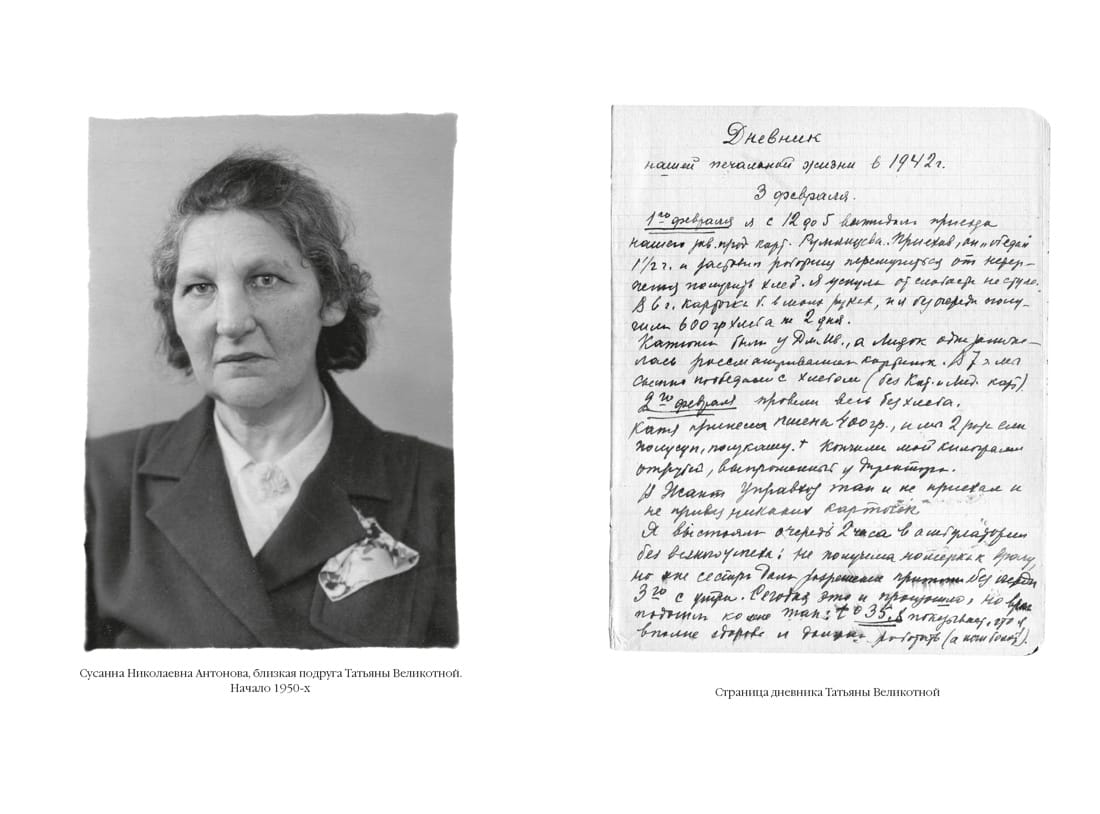 Сусанна Николаевна Антонова, близкая подруга Татьяны Великотной.
Начало 1950-х
Дневник
нашей печальной жизни в 1942 г.
3 февраля.
1го февраля я с 12 до 5 выжидала приезда
нашего зав. прод. карт. Румянцева. Приехав, он „обедал
1½ г. и заставил
получить хлеб. Я уснула от слабости на стуле.
В 6 г. карточки б. в моих руках, и я без очереди полу-
чила 600 гр хлеба на 2 дня.
Катюша была у Дм. Ив., а Лидок
рассматриванием картинок. В 7 ч мы
сытно пообедали с хлебом (без Кат. и Лид. карт)
2го февраля провели весь без хлеба.
Катя принесла пшена 400 гр., и мы 2 раза ели
полусуп, полукашу. + Кончили мой килограмм
отрубей, выпрошенный у Директора.
Управхоз так и не приехал и
не привез никаких карточек
Я выстояла очередь 2 часа в амбулатории
без всякого успеха: не получила номерка к врачу,
но мне сестра дала разрешение притти без очереди
3го с утра. Сегодня это и произошло, но врач
подошел ко мне так: t° 35,8 показывает, что я
вполне здорова и должна работать
Страница дневника Татьяны Великотной